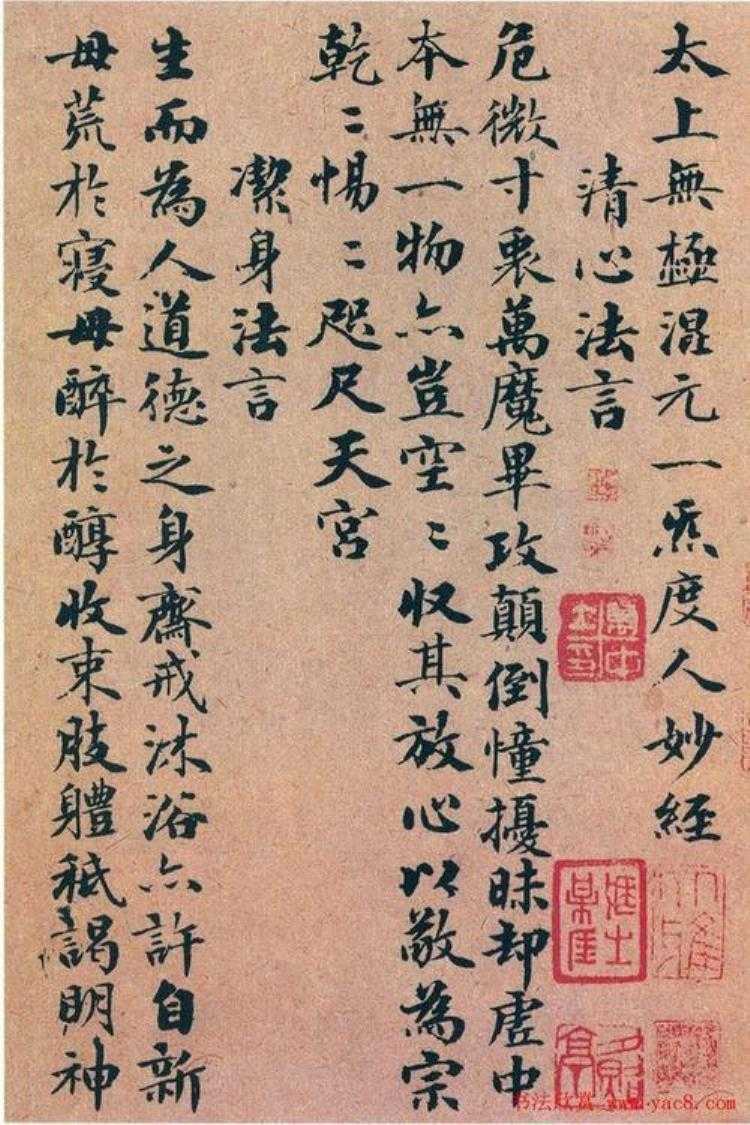 太上無極混元一炁度人妙經
清心法言
危微寸衷萬魔畢攻顛倒憧擾昧却虛中
本無一物亦豈空〻收其放心以敬為宗
乾〻惕〻咫尺天宮
潔身法言
生而為人道德之身齋戒沐浴亦許自新
毋荒於寢毋醉於醇收束肢體祇謁明神
书法欣赏 www.yac8.com